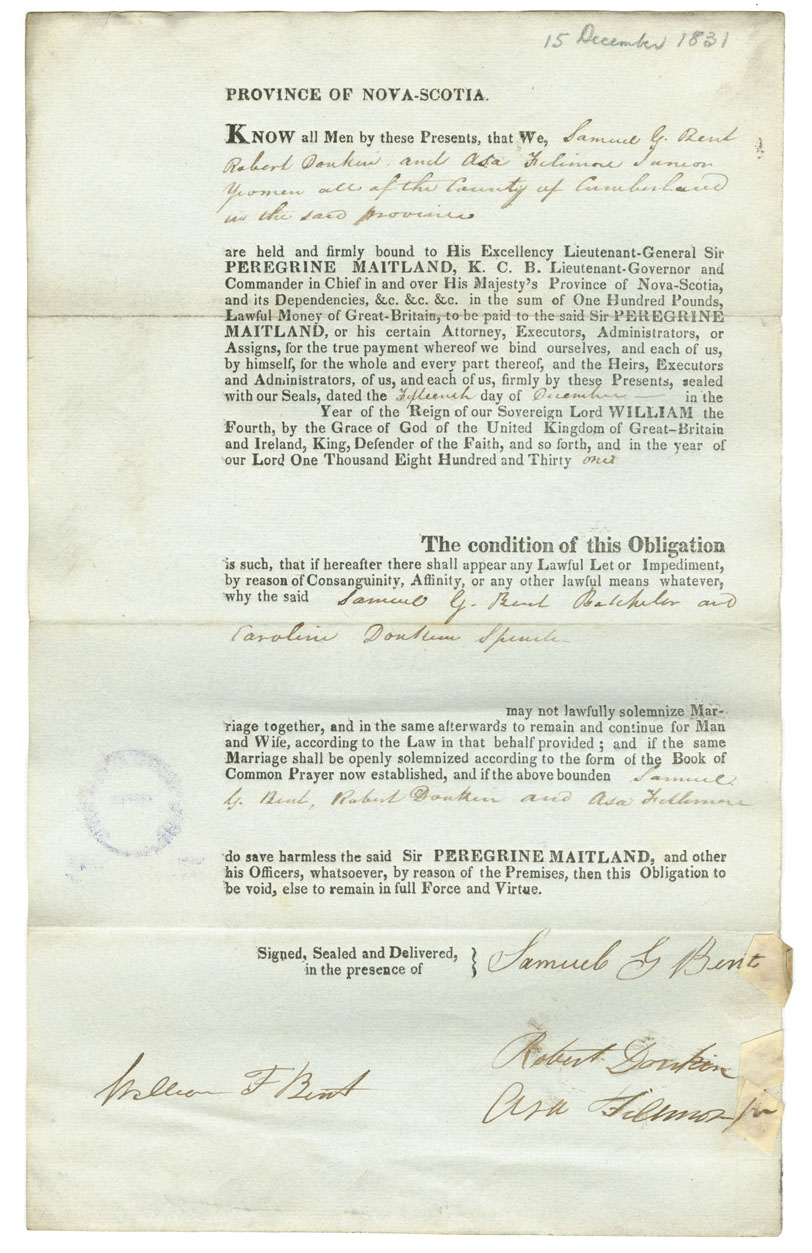 15 December 1831
PROVINCE OF NOVA-SCOTIA.
KNOW all Men by these Presents, that We, Samuel G. Bent
Robert Donkin and Asa Fillmore Junior
Yeomen all of the County of Cumberland
in the said province
are held and firmly bound to His Excellency Lieutenant-General Sir
PEREGRINE MAITLAND, K. C. B. Lieutenant-Governor and
Commander in Chief in and over His Majesty's Province of Nova-Scotia,
and its Dependencies, &c. &c. &c. in the sum of One Hundred Pounds,
Lawful Money of Great-Britain, to be paid to the said Sir PEREGRINE
MAITLAND, or his certain Attorney, Executors, Administrators, or
Assigns, for the true payment whereof we bind ourselves, and each of us,
by himself, for the whole and every part thereof, and the Heirs, Executors
and Administrators, of us, and each of us, firmly by these Presents, sealed
with our Seals, dated the Fifteenth day of December — in the
Year of the Reign of our Sovereign Lord WILLIAM the
Fourth, by the Grace of God of the United Kingdom of Great-Britain
and Ireland, King, Defender of the Faith, and so forth, and in the year of
our Lord One Thousand Eight Hundred and Thirty one
The condition of this Obligation
is such, that if hereafter there shall appear any Lawful Let or Impediment,
by reason of Consanguinity, Affinity, or any other lawful means whatever,
why the said Samuel G. Bent Batchelor and
Caroline Donkin Spinster
may not lawfully solemnize Mar-
riage together, and in the same afterwards to remain and continue for Man
and Wife, according to the Law in that behalf provided ; and if the same
Marriage shall be openly solemnized according to the form of the Book of
Common Prayer now established, and if the above bounden Samuel
G. Bent, Robert Donkin and Asa Fillmore
do save harmless the said Sir PEREGRINE MAITLAND, and other
his Officers, whatsoever, by reason of the Premises, then this Obligation to
be void, else to remain in full Force and Virtue.
Signed, Sealed and Delivered,
in the presence of } Samuel G Bent
Robert Donkin
William F Bent
Asa Fillmore Jr